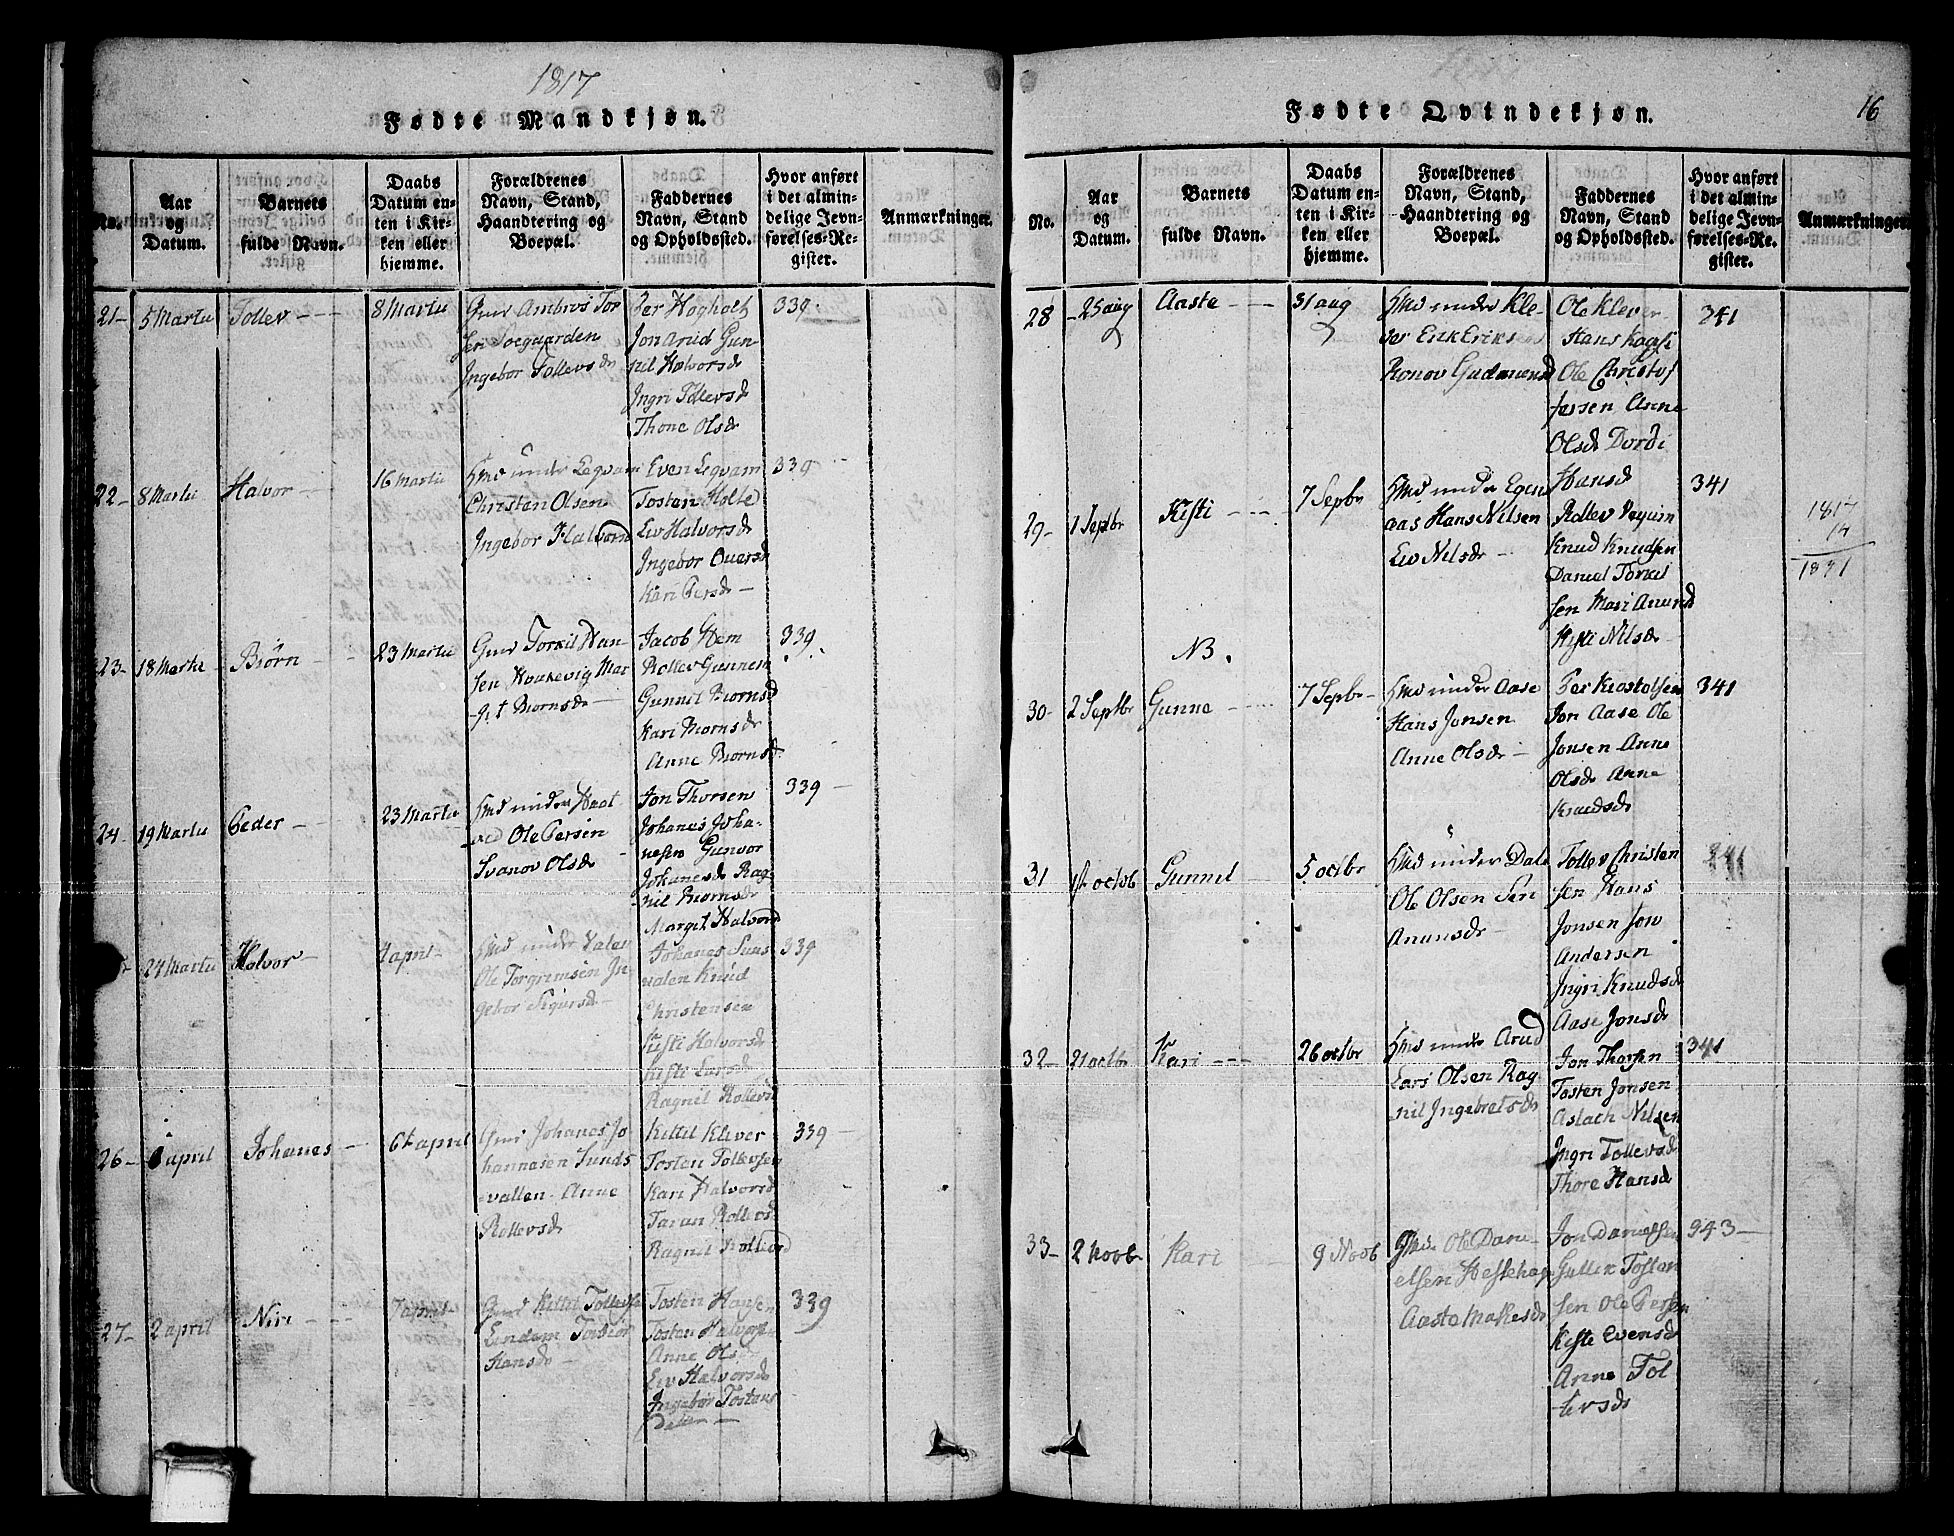 1817
Fødte Mandkjøn.
No.
Aar og Datum.
Barnets fulde Navn.
Daabs Datum enten i Kirken eller hjemme.
Forældrenes Navn, Stand, Haandtering og Boepæl.
Faddernes Navn, Stand og Opholdssted.
Hvor anført i det almindelige Jevnførelses-Register.
Anmærkninger.
21- 5 Martii Tollev 8 Martii
Gmd Ambros Tor
sen Soeguarden
Ingebor Tollevsdr
Per Hogholt
Jon Arud Gun
nil Halvorsdr
Ingri Tollevsdr
Thone Olsdr
339
22- 8 Martii Halvor 16 Martii
Hmd under Legvam
Christen Olsen
Ingebor Halvord
Even Legvam
Tosten Holte
Liv Halvorsdr
Ingebor Oversd
Kari Persdr
339
23- 18 Martii Biørn 23 Martii
Gmd Torkil Han
sen Kvakevig Mar
git Biornsdr
Jacob Hem
Rollev Gunnem
Gunnil Biornsd
Kari Biornsdr
Anne Biornsd
339
24- 19 Martii Peder 23 Martii
Hmd under Haat
ved Ole Persen
Svanov Olsdr
Jon Thorsen
Johanes Joha
nesen Gunvor
Johanesdr Rag
nil Biornsdr
Margit Halvord
339
24 Martii Halvor 1 april
Hmd under Valen
Ole Torgrimsen In
gebor Sigursdr
Johanes Suns
valen Knud
Christensen
Kisti Halvorsdr
Kisti Larsdr
Ragnil Rollevsd
339
26- 1 april Johanes 6te april
Gmd Johanes Jo
hannesen Sunds
vallen Anne
Rollevsdr
Kittil Kliver
Tosten Tollevsen
Kari Halvorsd
Taran Rollevsd
Ragnil Rollevd
339
27- 2 april Niri 7 april
Gmd Kittil Tollevse
Lindem Torbior
Hansdr
Tosten Hansen
Tosten Halvorse
Anne Ols
Liv Halvorsdr
Ingebor Tostens
Datter
339
16
Fødte Qvindekjøn.
No.
Aar og Datum.
Barnets fulde Navn.
Daabs Datum enten i Kirken eller hjemme.
Forældrenes Navn, Stand, Haandtering og Boepæl.
Faddernes Navn, Stand og Opholdssted.
Hvor anført i det almindelige Jevnførelses-Register.
Anmærkninger.
28 25 aug Aaste 31 aug
Hmd under Kle
ver Erik Eriks
Ronov Gudmunsd
Ole Klever
Hans Kaase
Ole Christof
fersen Anne
Olsdr Dordi
Hansd
341
29- 1 Septbr Kisti 7 Sepbr
Hmd under Egen
aas Hans Nilsen
Liv Nilsdr
Rollev Vequim
Knud Knudsen
Daniel Torkil
sen Mari Anund
Kisti Nilsdr
341
1817
14
1831
NB.
30- 2 Septbr Gunne 7 Sepbr
Hmd under Aase
Hans Jonsen
Anne Olsdr
Per Kiostolsen
Jon Aase Ole
Jonsen Anne
Olsdr Anne
Knudsdr
341
31 1st octob Gunnil 5 octbr
Hmd under Dale
Ole Olsen Siri
Anunsdr
Tollev Christen
sen Hans
Jonsen Jon
Andersen
Ingri Knudsd
Aase Jonsdr
341
32- 21 octbr Kari 26 octbr
Hmd under Arud
Lars Olsen Rag
nil Ingebretsdr
Jon Thorsen
Tosten Jonsen
Aslach Nilsen
Ingri Tollevsdr
Thore Hansd
341
33- 2 Novb. Kari 9 Novb
Gmd. Ole Dani
elsen Hestehag
Aaste Mattesdr
Jon Danielsen
Gullik Tosten
sen Ole Persen
Kisti Evensdr
Anne Tol
levsdr
343